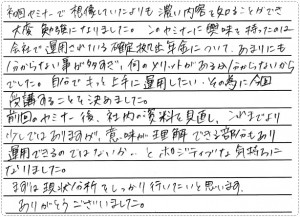 初回セミナーで想像していたよりも濃い内容を知ることができ
大変勉強になりました。このセミナーに興味を持ったのは
会社で運用されている確定拠出年金について、あまりにも
分からない事が多すぎて、何のメリットがあるか分からないから
でした。自分でもっと上手に運用したい、その為に今回
受講することを決めました。
前回のセミナー後、社内の資料を見直し、これまでより
少しではありますが、意味が理解できる部分もあり
運用できるのではないか…とポジティブな気持ちに
なりました。
まずは現状分析をしっかり行いたいと思います。
ありがとうございました。